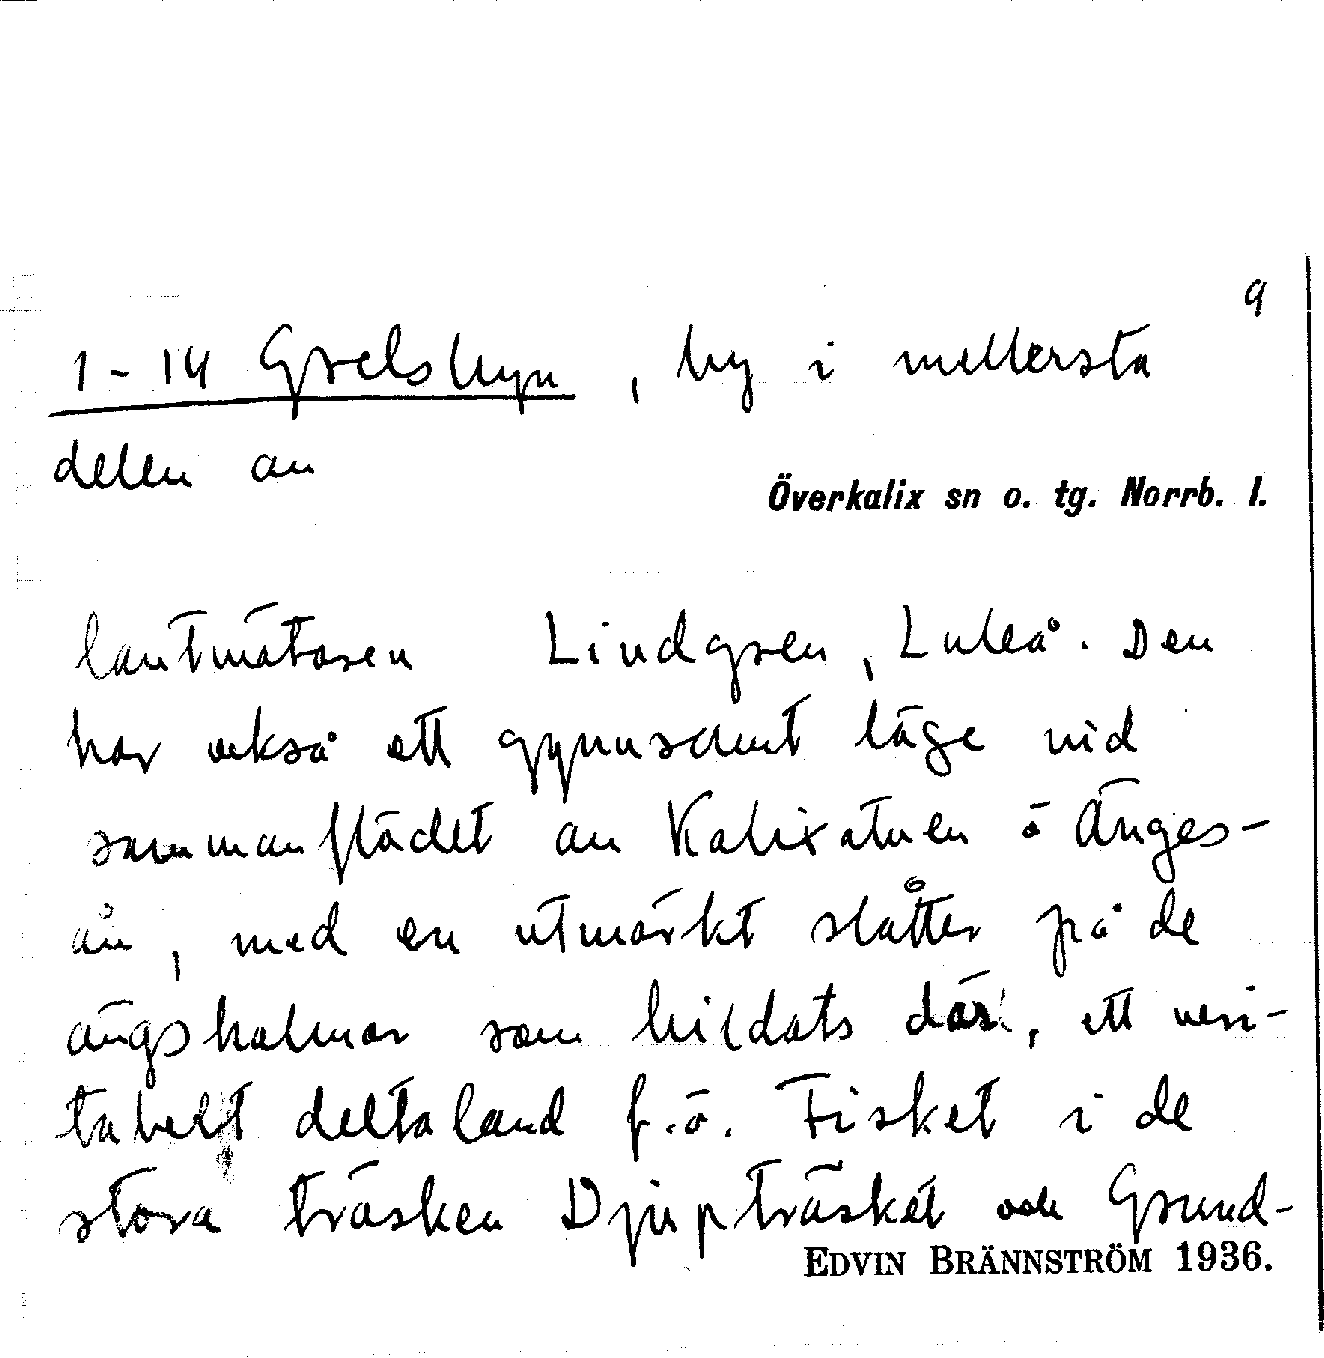 9
1-14 Grelsbyn, by i mellersta
delen av
Överkalix sn o. tg. Norrb. l.
lantmätaren Lindgren, Luleå. Den
har också ett gynnsamt läge vid
sammanflödet av Kalixälven o Änges-
ån, med en utmärkt slåtter på de
ängsholmar som bildats där, ett veri-
tabelt deltaland f.ö. Fisket i de
stora träsken Djupträsket och Grund-
EDVIN BRÄNNSTRÖM 1936.